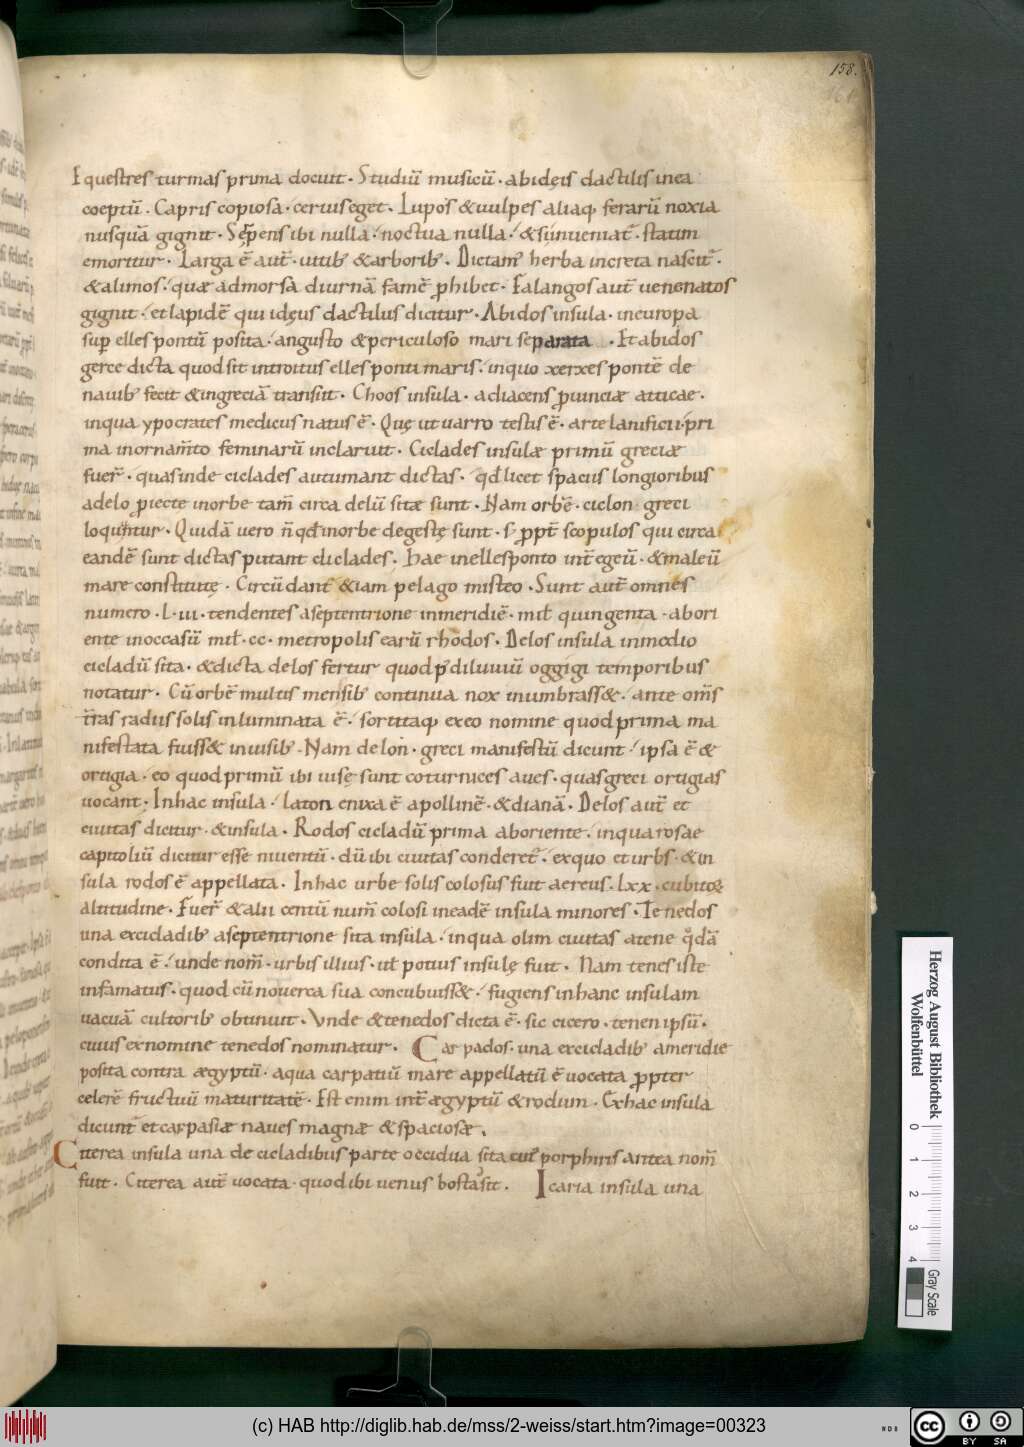 158.
Equestres turmas prima docuit · Studiū musicū · ab idęis dactilis in ea
coeptū · Capris copiosa · ceruis eget · Lupos & uulpes aliaq; ferarū noxia
nusquā gignit · Serpens ibi nulla · noctua nulla · & si inueniat᷑ · statim
emoritur · Larga ē aut̄ · uitib; & arborib; · Dictamī herba in creta nascit᷑ ·
& alimos · quæ admorsa diurnā famē ꝓhibet · Falangos aut̄ uenenatos
gignit · et lapidē qui idęus dactilus dicitur · Abidos insula · in europa
suꝑ ellespontū posita · angusto & periculoso mari separata · Et abidos
gerce dicta quod sit introitus ellesponti maris · in quo xerxes pontē de
nauib; fecit & in greciā transiit · Choos insula · adiacens ꝓuinciæ atticae ·
in qua ypocrates medicus natus ē · Quę ut uarro testis ē · arte lanificii · pri
ma in ornam̄to feminarū inclaruit · Ciclades insulæ primū greciæ
fuer̄ · quas inde ciclades autumant dictas · qđ licet spaciis longioribus
a delo ꝓiecte in orbe tam̄ circa delū sitæ sunt · Nam orbē · ciclon greci
loquntur · Quidā uero n̄ qđ in orbe degestę sunt · s; ꝓpt̄ scopulos qui circa
eandē sunt dictas putant ciclades · Hae in ellesponto int̄ egeū · & maleū
mare constitutę · Circūdant̄ & iam pelago misteo · Sunt aut̄ omnes
numero · L · iii · tendentes a septentrione in meridiē · mił quingenta · ab ori
ente in occasū mił · cc · metropolis earū rhodos · Delos insula in medio
cicladū sita · & dicta delos fertur quod p̄ diluuiū oggigi temporibus
notatur · Cū orbē multis mensib; continua nox inumbrass& · ante om̄s
t̄ras radiis solis inluminata ē · sortitaq; ex eo nomine quod prima ma
nifestata fuiss& in uisib; · Nam delon · greci manifestū dicunt · ipsa ē &
ortigia · eo quod primū ibi uisę sunt coturnices aues · quas greci ortigias
uocant · In hac insula · laton enixa ē apollinē · & dianā · Delos aut̄ et
ciuitas dicitur · & insula · Rodos cicladū prima ab oriente · in qua rosae
capitoliū dicitur esse inuentū · dū ibi ciuitas conderet᷑ · ex quo et urbs · & in
sula rodos ē appellata · In hac urbe solis colosus fuit aereus · lxx · cubitoꝝ
altitudine · Fuer̄ & alii centū num̄ colosi in eadē insula minores · Tenedos
una ex cicladib; a septentrione sita insula · in qua olim ciuitas a tene q̊dā
condita ē · unde nom̄ · urbis illius · uł potius insulę fuit · Nam tenes iste
infamatus · quod cū nouerca sua concubuiss& · fugiens in hanc insulam
uacuā cultorib; obtinuit · Vnde & tenedos dicta ē · sic cicero · tenen ipsū ·
cuius ex nomine tenedos nominatur · Carpados · una ex cicladib; a meridie
posita contra ægyptū · a qua carpatiū mare appellatū ē uocata ꝓpter
celerē fructuū maturitatē · Est enim int̄ ægyptū & rodum · Ex hac insula
dicunt᷑ et carpasiæ naues magnæ & spaciosæ ·
Citerea insula una de cicladibus parte occidua sita cui᷒ porphiris antea nom̄
fuit · Citerea aut̄ uocata · quod ibi uenus b᷑osta sit · Icaria insula una
Herzog August Bibliothek
Wolfenbüttel
0 1 2 3 4
Gray Scale
(c) HAB http://diglib.hab.de/mss/2-weiss/start.htm?image=00323
cc BY SA